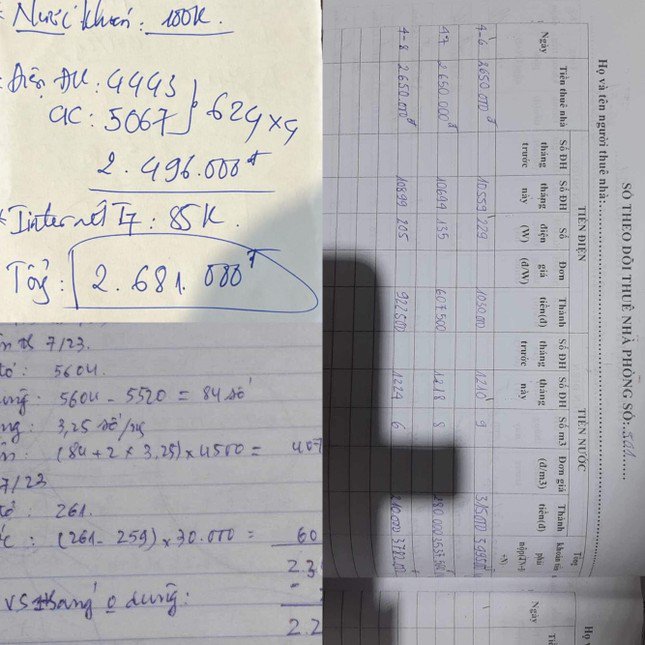 * Nước khoán: 100K.
Điện ĐK: 4443
CK: 5067 } 624 x 4
2.496.000đ
* Internet T7: 85K.
Tổng: 2.681.000đ
7/23.
5604
5604 - 5520 = 84 số
3,25 số/ng
(84 + 2 x 3,25) x 4500 = 407
7/23
261.
(261 - 259) x 30.000 = 60
23
VS tháng o dùng:
2.2
SỔ THEO DÕI THUÊ NHÀ PHÒNG SỐ: 501
Họ và tên người thuê nhà:
TIỀN ĐIỆN TIỀN NƯỚC
Ngày Tiền thuê nhà Số ĐH tháng trước Số ĐH tháng này Số điện (W) Đơn giá (đ/W) Thành tiền(đ) Số ĐH tháng trước Số ĐH tháng này Số m3 Đơn giá (đ/m3) Thành tiền(đ) Tổng khoản
4-6 2650.000đ 10559 229 1030.000 1210 9 315.000
4-7 2650.000đ 10694 135 607500 1218 8 280.000 3537.500
4-8 2650.000đ 10899 205 922500 1224 6 210.000 3782.500
Ngày